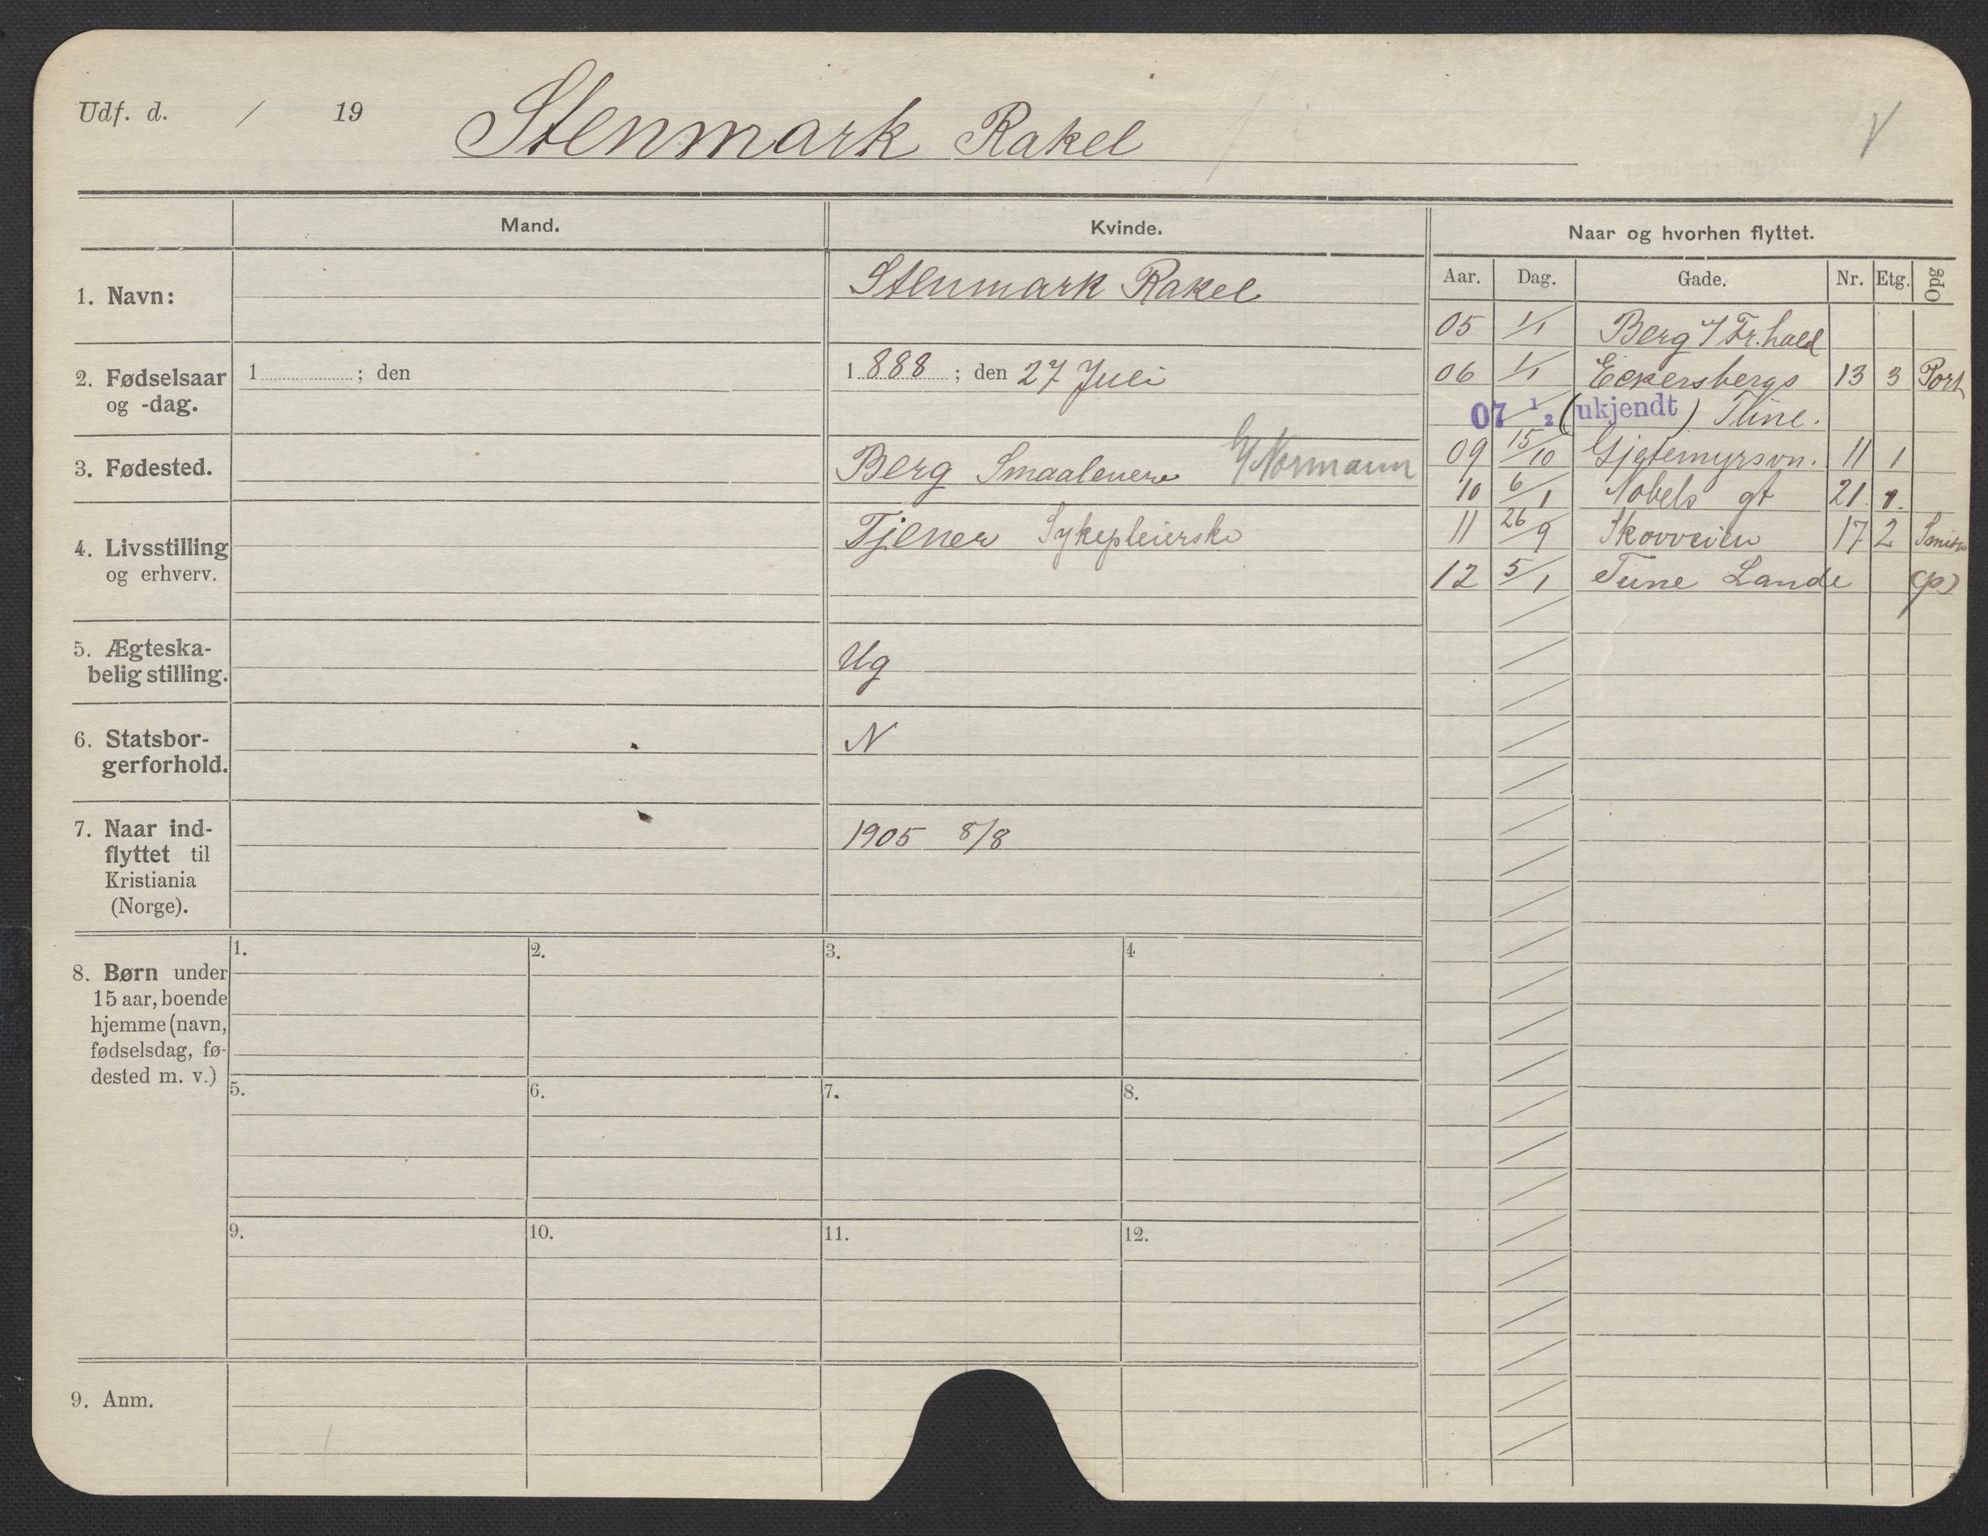 Udf. d. / 19 Stenmark Rakel V
Mand. Kvinde. Naar og hvorhen flyttet.
Aar. Dag. Gade. Nr. Etg. Opg
1. Navn: Stenmark Rakel
05 1/1 Berg Fr.hald
2. Fødselsaar og -dag. 1 ; den 1888 ; den 27 Juli
06 1/1 Eckersbergs 13 3 Port
07 1/2 (ukjendt) Tune.
3. Fødested. Berg Smaalenene Normann
09 15/10 Gjetemyrsvn. 11 1
10 6/1 Nobels gt 21. 1.
4. Livsstilling og erhverv. Tjener Sykepleierske
11 26/9 Skovveien 17 2
12 5/1 Tune Lande (p)
5. Ægteska-
belig stilling. Ug
6. Statsbor-
gerforhold. N
7. Naar ind-
flyttet til
Kristiania
(Norge). 1905 8/8
8. Børn under
15 aar, boende
hjemme (navn,
fødselsdag, fø-
dested m. v.)
1. 2. 3. 4
5. 6. 7. 8.
9. 10. 11. 12.
9. Anm.